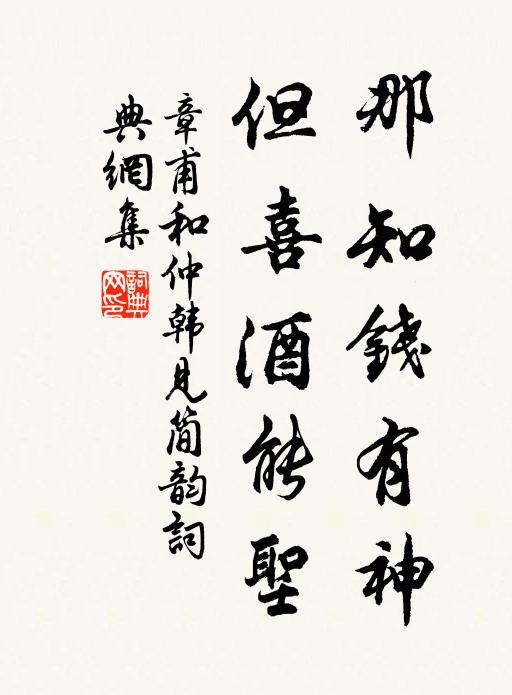 那知錢有神
但喜酒能聖
章甫和仲韩見简韵詞
典網集
詞典網印